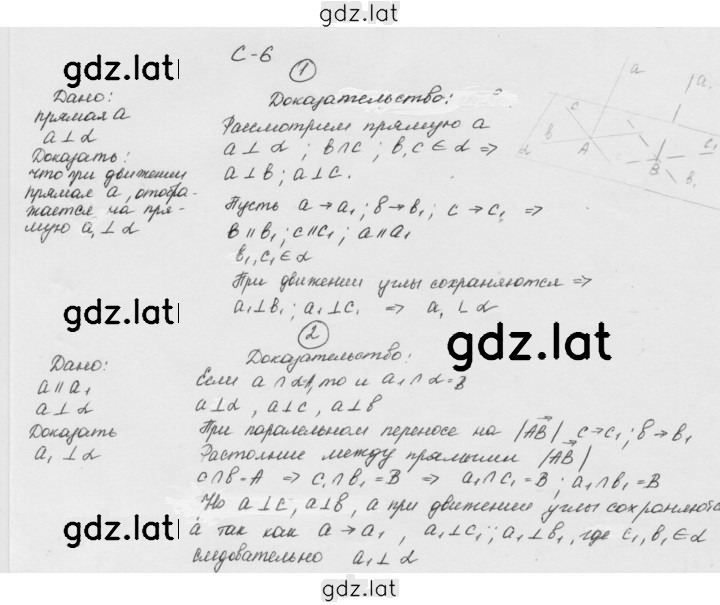 gdz.lat
С-6
gdz.lat
1
Дано:
прямая a
a ⊥ α
Доказать:
что при движении
прямая a, отобра-
жается на пря-
мую a₁ ⊥ α
Доказательство:
Рассмотрим прямую a
a ⊥ α ; b∩c ; b, c ∈ α ⇒
a ⊥ b ; a ⊥ c.
Пусть a → a₁ ; b → b₁ ; c → c₁ ⇒
b ∥ b₁ ; c ∥ c₁ ; a ∥ a₁
b₁, c₁ ∈ α
При движении углы сохраняются ⇒
a₁ ⊥ b₁ ; a₁ ⊥ c₁ ⇒ a₁ ⊥ α
a
a₁
c
b
α
A
B
c₁
b₁
gdz.lat
gdz.lat
2
Дано:
a ∥ a₁
a ⊥ α
Доказать
a₁ ⊥ α
Доказательство:
Если a ∩ α, то и a₁ ∩ α = B
a ⊥ α, a ⊥ c, a ⊥ b
При паралельном переносе на |AB| c → c₁ ; b → b₁
Растояние между прямыми |AB|
c∩b = A ⇒ c₁∩b₁ = B ⇒ a₁∩c₁ = B ; a₁∩b₁ = B
Но a ⊥ c, a ⊥ b, а при движении углы сохраняются
а так как a → a₁, a₁ ⊥ c₁ ; a₁ ⊥ b₁, где c₁, b₁ ∈ α
следовательно a₁ ⊥ α
gdz.lat
gdz.lat